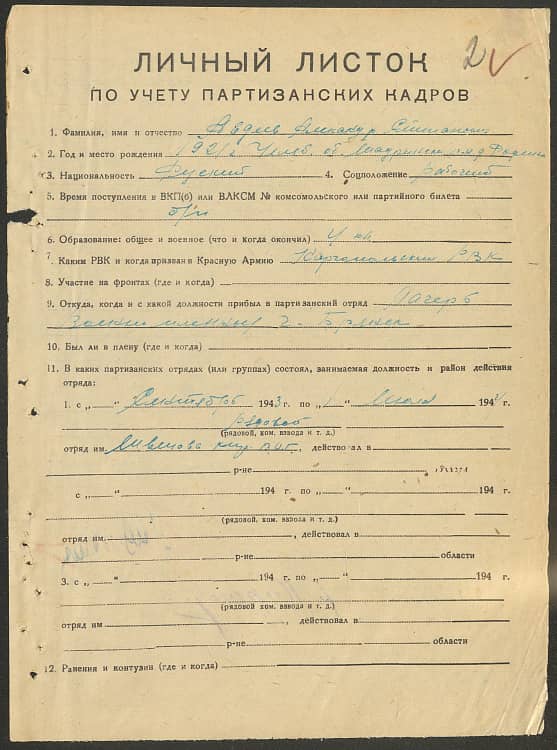 2
ЛИЧНЫЙ ЛИСТОК
ПО УЧЕТУ ПАРТИЗАНСКИХ КАДРОВ
1. Фамилия, имя и отчество Авдеев Александр
2. Год и место рождения 1921 г. Челяб. об.
3. Национальность Руский 4. Соцположение рабочий
5. Время поступления в ВКП(б) или ВЛКСМ № комсомольского или партийного билета
б/п
6. Образование: общее и военное (что и когда окончил) 4 кл.
7. Каким РВК и когда призван в Красную Армию Каргапольским РВК
8. Участие на фронтах (где и когда)
9. Откуда, когда и с какой должности прибыл в партизанский отряд Лагерь
г.
10. Был ли в плену (где и когда)
11. В каких партизанских отрядах (или группах) состоял, занимаемая должность и район действия
отряда:
1. с „ “ Сентября 1943 г. по „1 Июля 194 г.
рядовой
(рядовой, ком. взвода и т. д.)
отряд им , действовал в
р-не
с „ “ 194 г. по „ “ 194 г.
(рядовой, ком. взвода и т. д.)
отряд им. , действовал в
р-не области
3. с „ “ 194 г. по „ “ 194 г.
(рядовой, ком. взвода и т. д.)
отряд им , действовал в
р-не области
12. Ранения и контузии (где и когда)